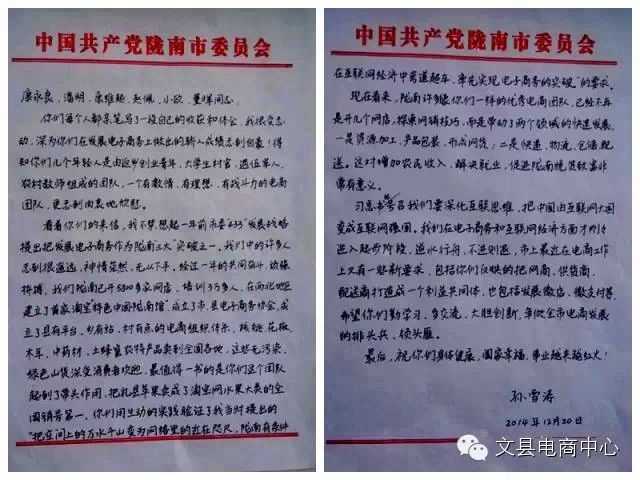 中国共产党陇南市委员会
康永良、潘明、康维起、赵佩、小欧、董祥同志：
你们每个人都亲笔写了一段自己的收获和体会，我很受感
动，深为你们在发展电子商务上做出的骄人成绩感到自豪！得
知你们几个年轻人是由返乡创业青年、大学生村官、退伍军人、
农村教师组成的团队，一个有激情、有理想、有战斗力的电商
团队，更感到由衷地欣慰。
看着你们的来信，我不禁想起一年前市委"433"发展战略
提出把发展电子商务作为陇南三大"突破之一，我们中的许多人
感到很遥远，神情茫然，无从下手，经过一年的共同奋斗、顽强
拼搏，我们陇南已开5800多家网店，培训3万多人，在西北地区
建立了首家淘宝"特色中国陇南馆"，成立了市、县电子商务协会，成
立了县有平台、乡有站、村有点的电商组织体系，核桃、花椒、
木耳、中药材、土蜂蜜农特产品卖到全国各地，这些无污染、
绿色山货深受消费者欢迎，最值得一书的是你们这个团队
起到了带头作用，把礼县苹果卖成了淘宝网水果大类的全
国销量第一，你们用生动的实践验证了我当时提出的
"把空间上的万水千山变为网络里的近在咫尺，陇南有条件
中国共产党陇南市委员会
在互联网经济中弯道超车、率先实现电子商务的突破"的要求。
现在看来，陇南许多像你们一样的优秀电商团队，已经不再
是开几个网店，探索网销技巧，而是带动了两个领域的快速发展，
一是资源加工、产品包装、形成网货；二是快递、物流、仓储、配
送。这对增加农民收入、解决就业、促进陇南脱贫致富非
常有意义。
习总书记号召我们要深化互联思维，把中国由互联网大国
变成互联网强国。我们在电子商务和互联网经济方面才刚刚
进入起步阶段，逆水行舟，不进则退，市上最近在电商工作
上又有一些新要求，包括你们反映的把网商、供货商、
配送商打造成一个利益共同体，也包括发展微店、微支付等，
希望你们勤学习、多交流、大胆创新，争做全市电商发展
的排头兵、领头雁。
最后，祝你们身体健康，阖家幸福，事业越来越红火！
孙雪涛
2014年12月20日
文县电商中心